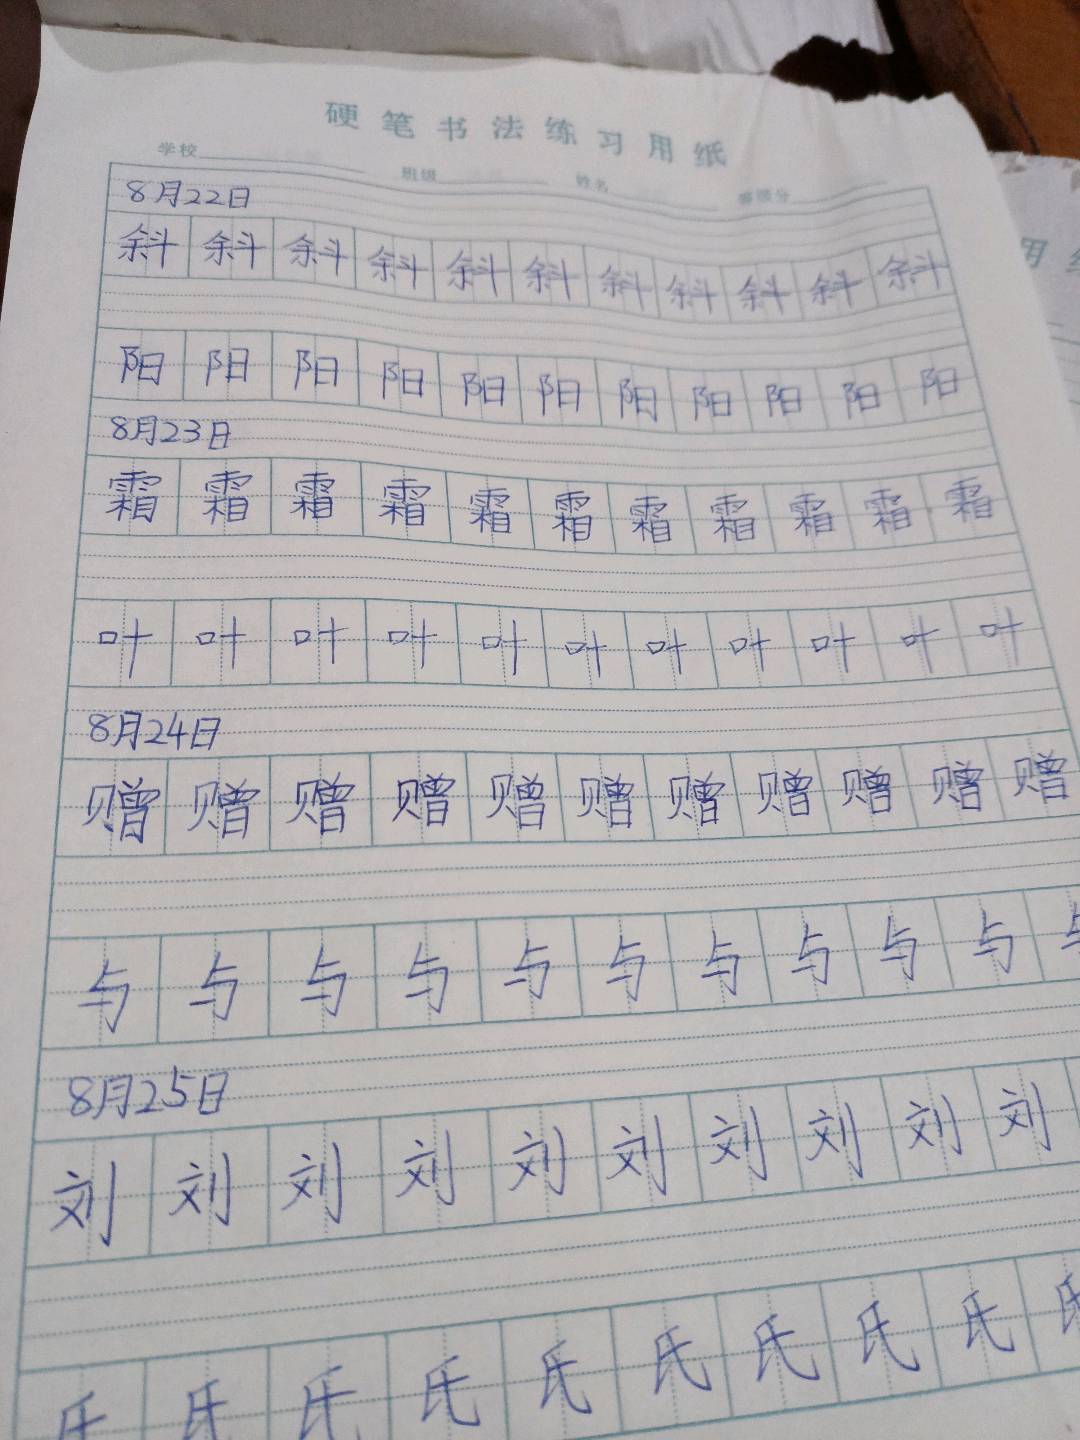 硬笔书法练习用纸
学校 班级 姓名 等级分
8月22日
斜斜斜斜斜斜斜斜斜斜斜
阳阳阳阳阳阳阳阳阳阳阳
8月23日
霜霜霜霜霜霜霜霜霜霜霜
叶叶叶叶叶叶叶叶叶叶叶
8月24日
赠赠赠赠赠赠赠赠赠赠赠
与与与与与与与与与与与
8月25日
刘刘刘刘刘刘刘刘刘刘
氏氏氏氏氏氏氏氏氏氏
用